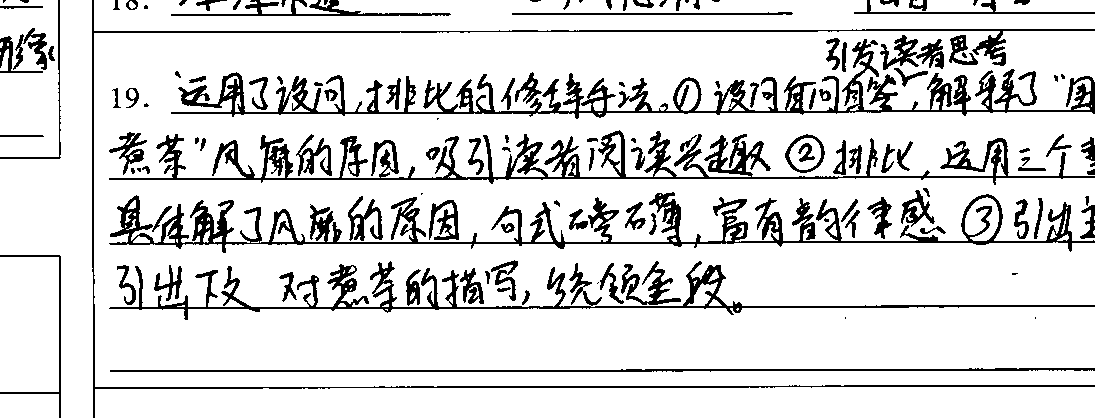 18.
形象
引发读者思考
19. 运用了设问,排比的修辞手法。①设问自问自答,解释了“围
煮茶”风靡的原因,吸引读者阅读兴趣 ②排比,运用三个
具体解了风靡的原因,句式磅礴,富有韵律感 ③引出主
引出下文 对煮茶的描写,统领全段。